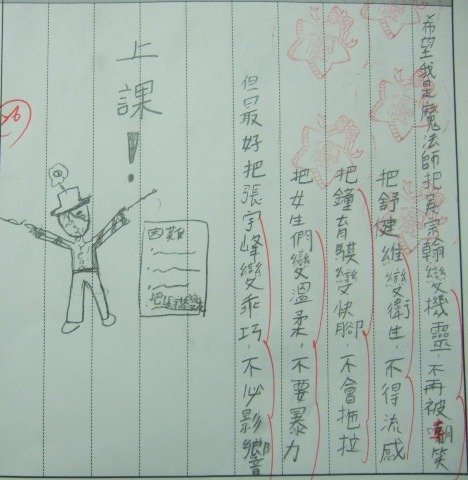 希望我是魔法師把宗翰變機靈，不再被嘲笑
把舒健維變衛生，不得流感
把鐘育騏變快腳，不會拖拉
把女生們變溫柔，不要暴力
但最好把張宇峰變乖巧，不必影響
上課！
困難